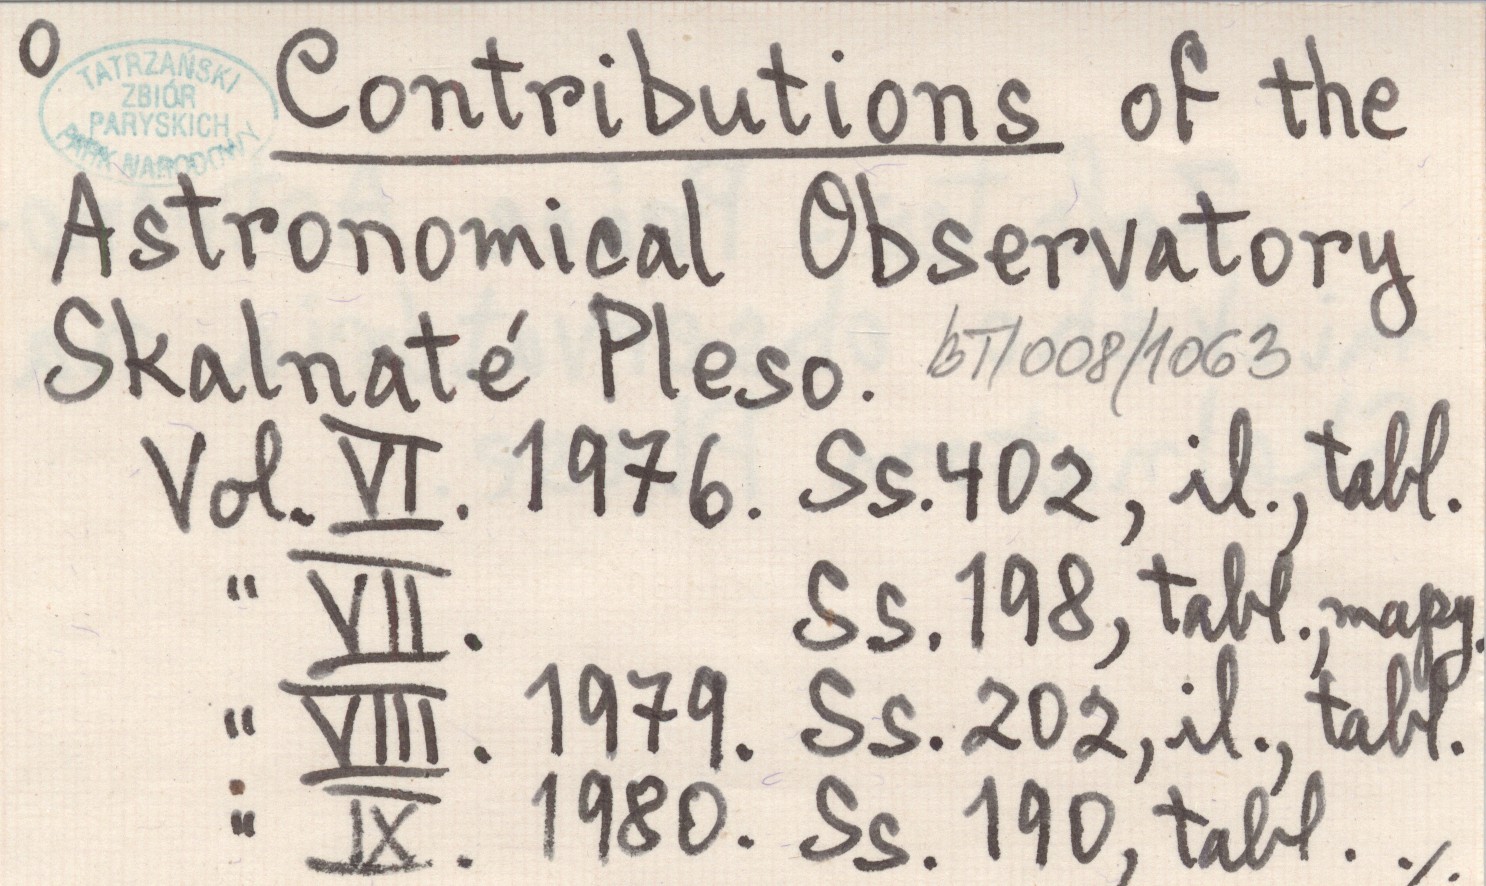 O
TATRZAŃSKI
ZBIÓR
PARYSKICH
PARK NARODOWY
Contributions of the
Astronomical Observatory
Skalnaté Pleso. bT/008/1063
Vol. VI. 1976. Ss. 402, il., tabl.
" VII. Ss. 198, tabl., mapy.
" VIII. 1979. Ss. 202, il., tabl.
" IX. 1980. Ss. 190, tabl. ./.